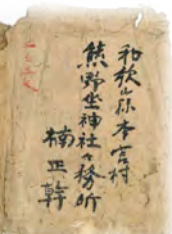 和歌山県本宮村
熊野坐神社々務所
楠正幹